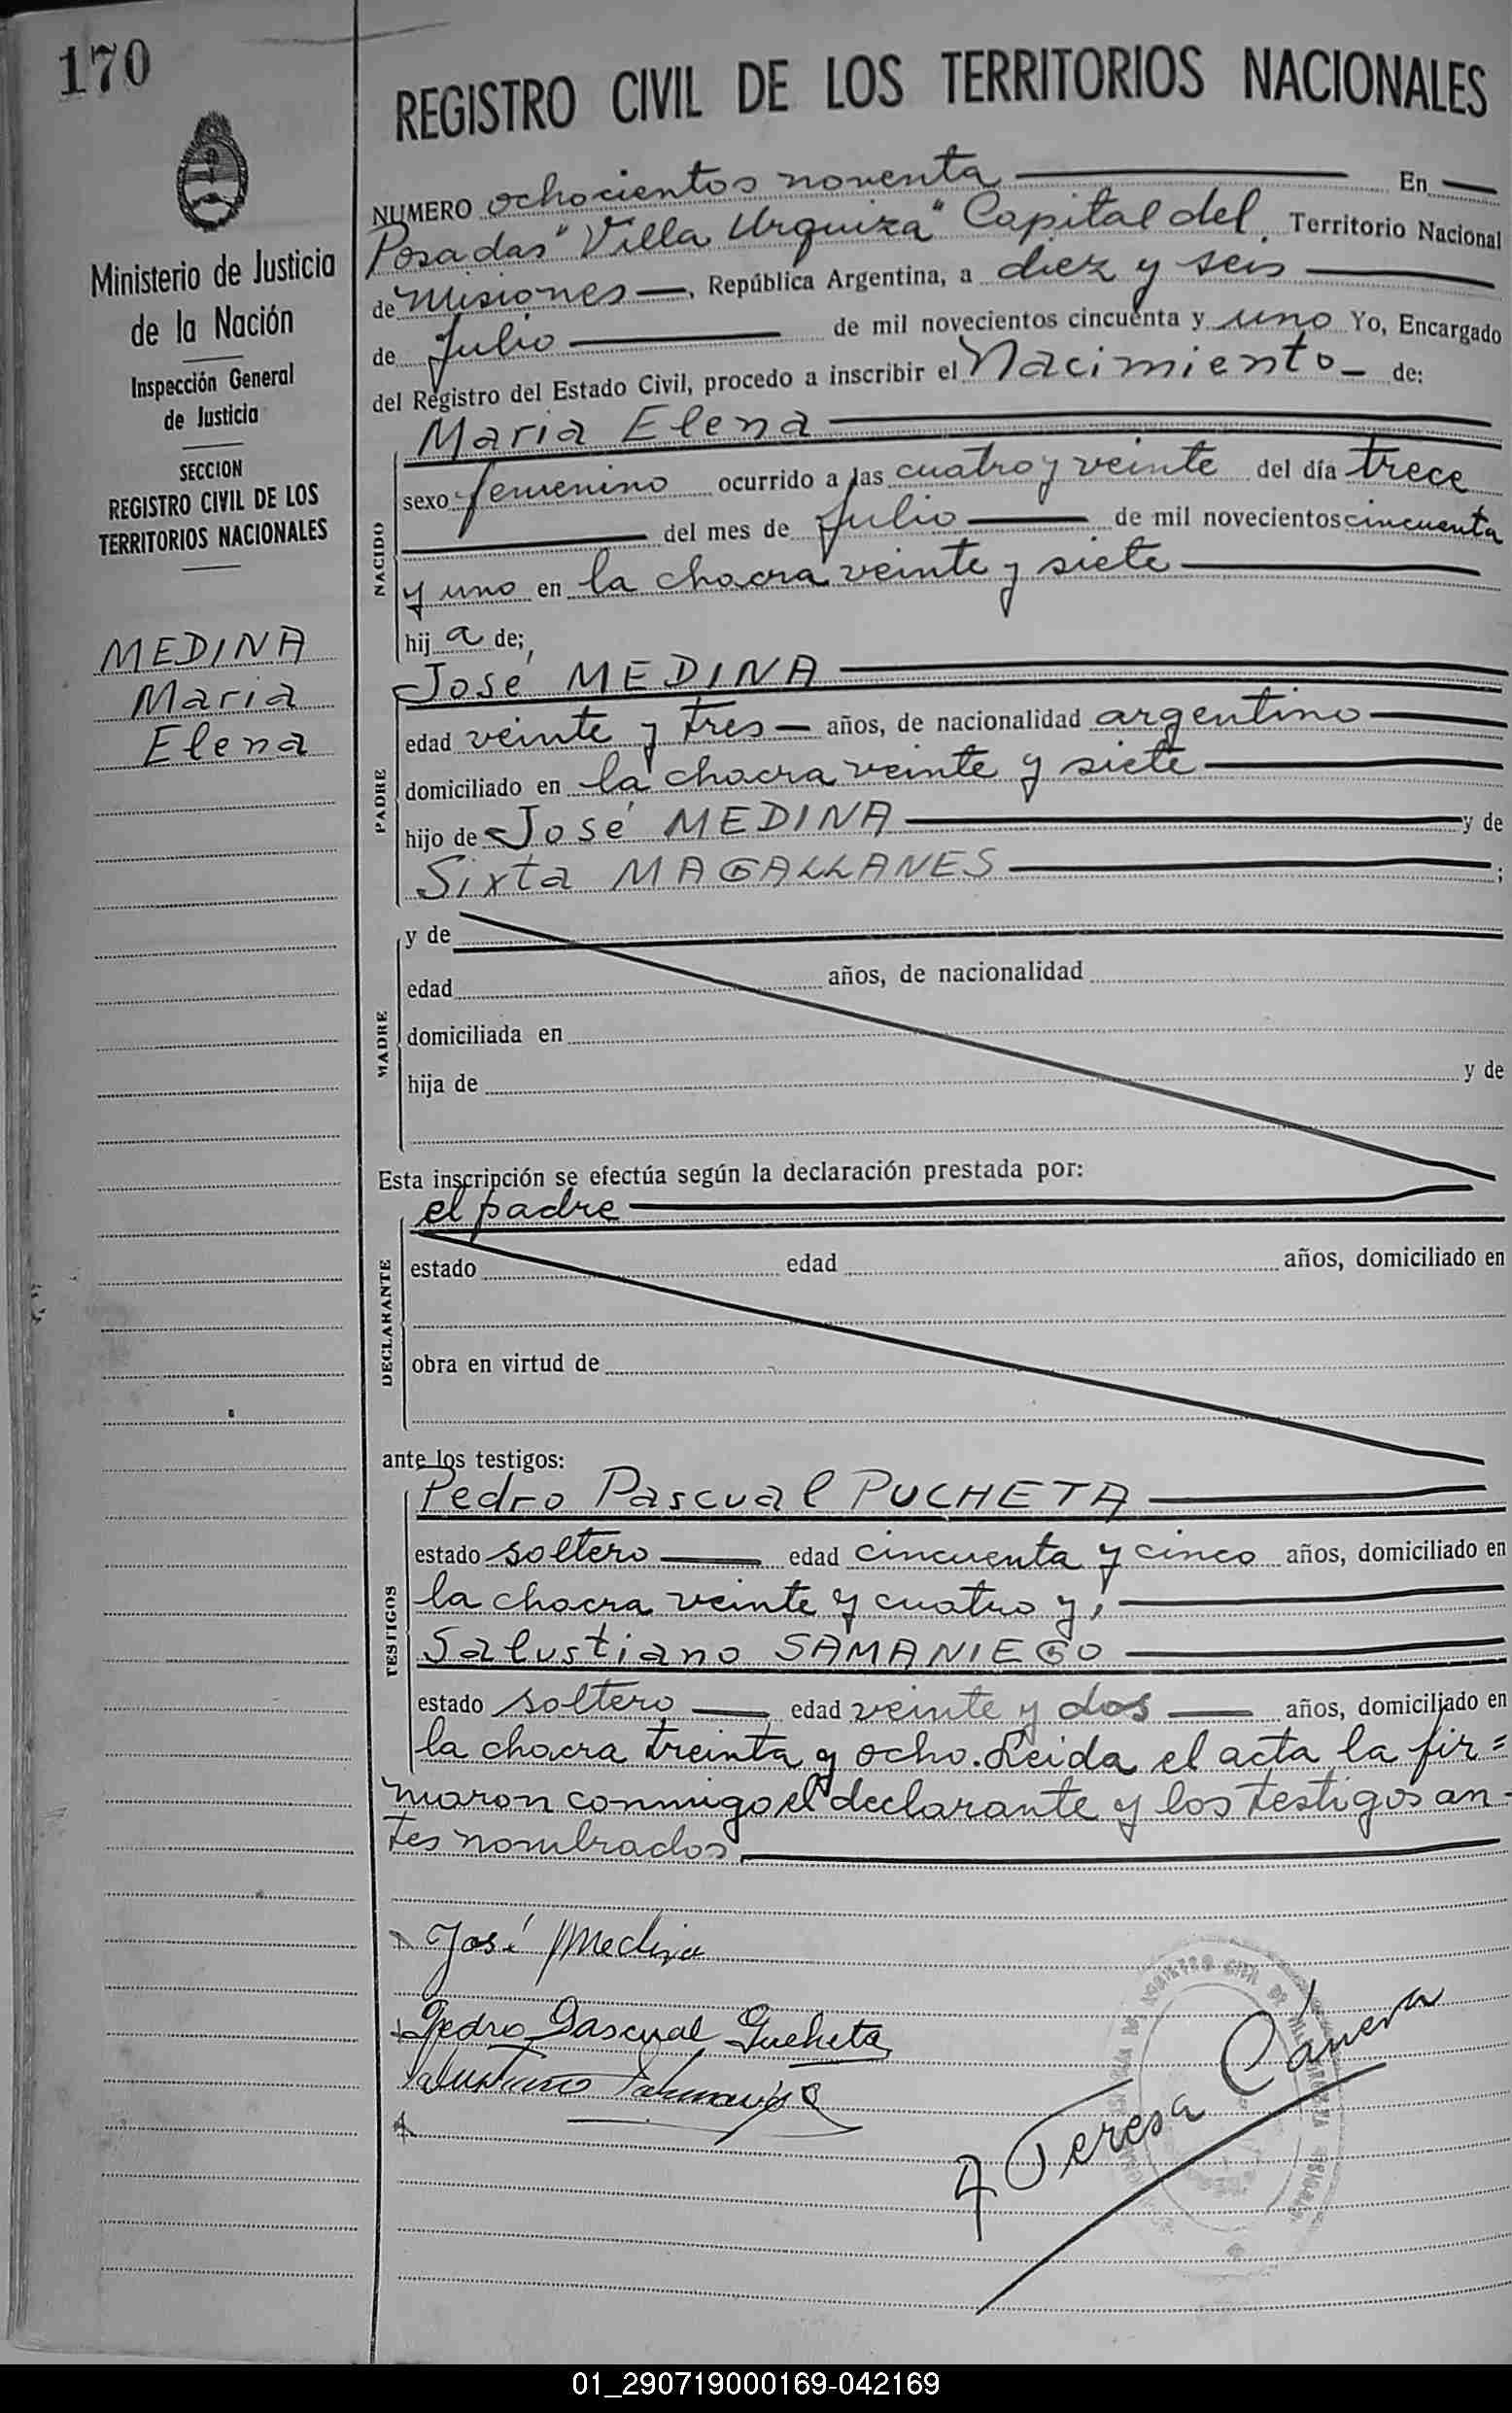 170
REGISTRO CIVIL DE LOS TERRITORIOS NACIONALES
Ministerio de Justicia
de la Nación
Inspección General
de Justicia
SECCION
REGISTRO CIVIL DE LOS
TERRITORIOS NACIONALES
MEDINA
Maria
Elena
NUMERO ochocientos noventa En
Posadas "Villa Urquiza" Capital del Territorio Nacional
de Misiones, República Argentina, a diez y seis
de Julio de mil novecientos cincuenta y uno Yo, Encargado
del Registro del Estado Civil, procedo a inscribir el Nacimiento de:
NACIDO
Maria Elena
sexo femenino ocurrido a las cuatro y veinte del día trece
del mes de Julio de mil novecientos cincuenta
y uno en la chacra veinte y siete
hij a de;
PADRE
José MEDINA
edad veinte y tres años, de nacionalidad argentino
domiciliado en la chacra veinte y siete
hijo de José MEDINA y de
Sixta MAGALLANES ;
MADRE
y de
edad años, de nacionalidad
domiciliada en
hija de y de
Esta inscripción se efectúa según la declaración prestada por:
DECLARANTE
el padre
estado edad años, domiciliado en
obra en virtud de
ante los testigos:
TESTIGOS
Pedro Pascual PUCHETA
estado soltero edad cincuenta y cinco años, domiciliado en
la chacra veinte y cuatro y,
Salustiano SAMANIEGO
estado soltero edad veinte y dos años, domiciliado en
la chacra treinta y ocho. Leida el acta la fir=
maron conmigo el declarante y los testigos an-
tes nombrados
José Medina
Pedro Pascual Pucheta
Salustiano Samaniego
Teresa Cánera
01_290719000169-042169